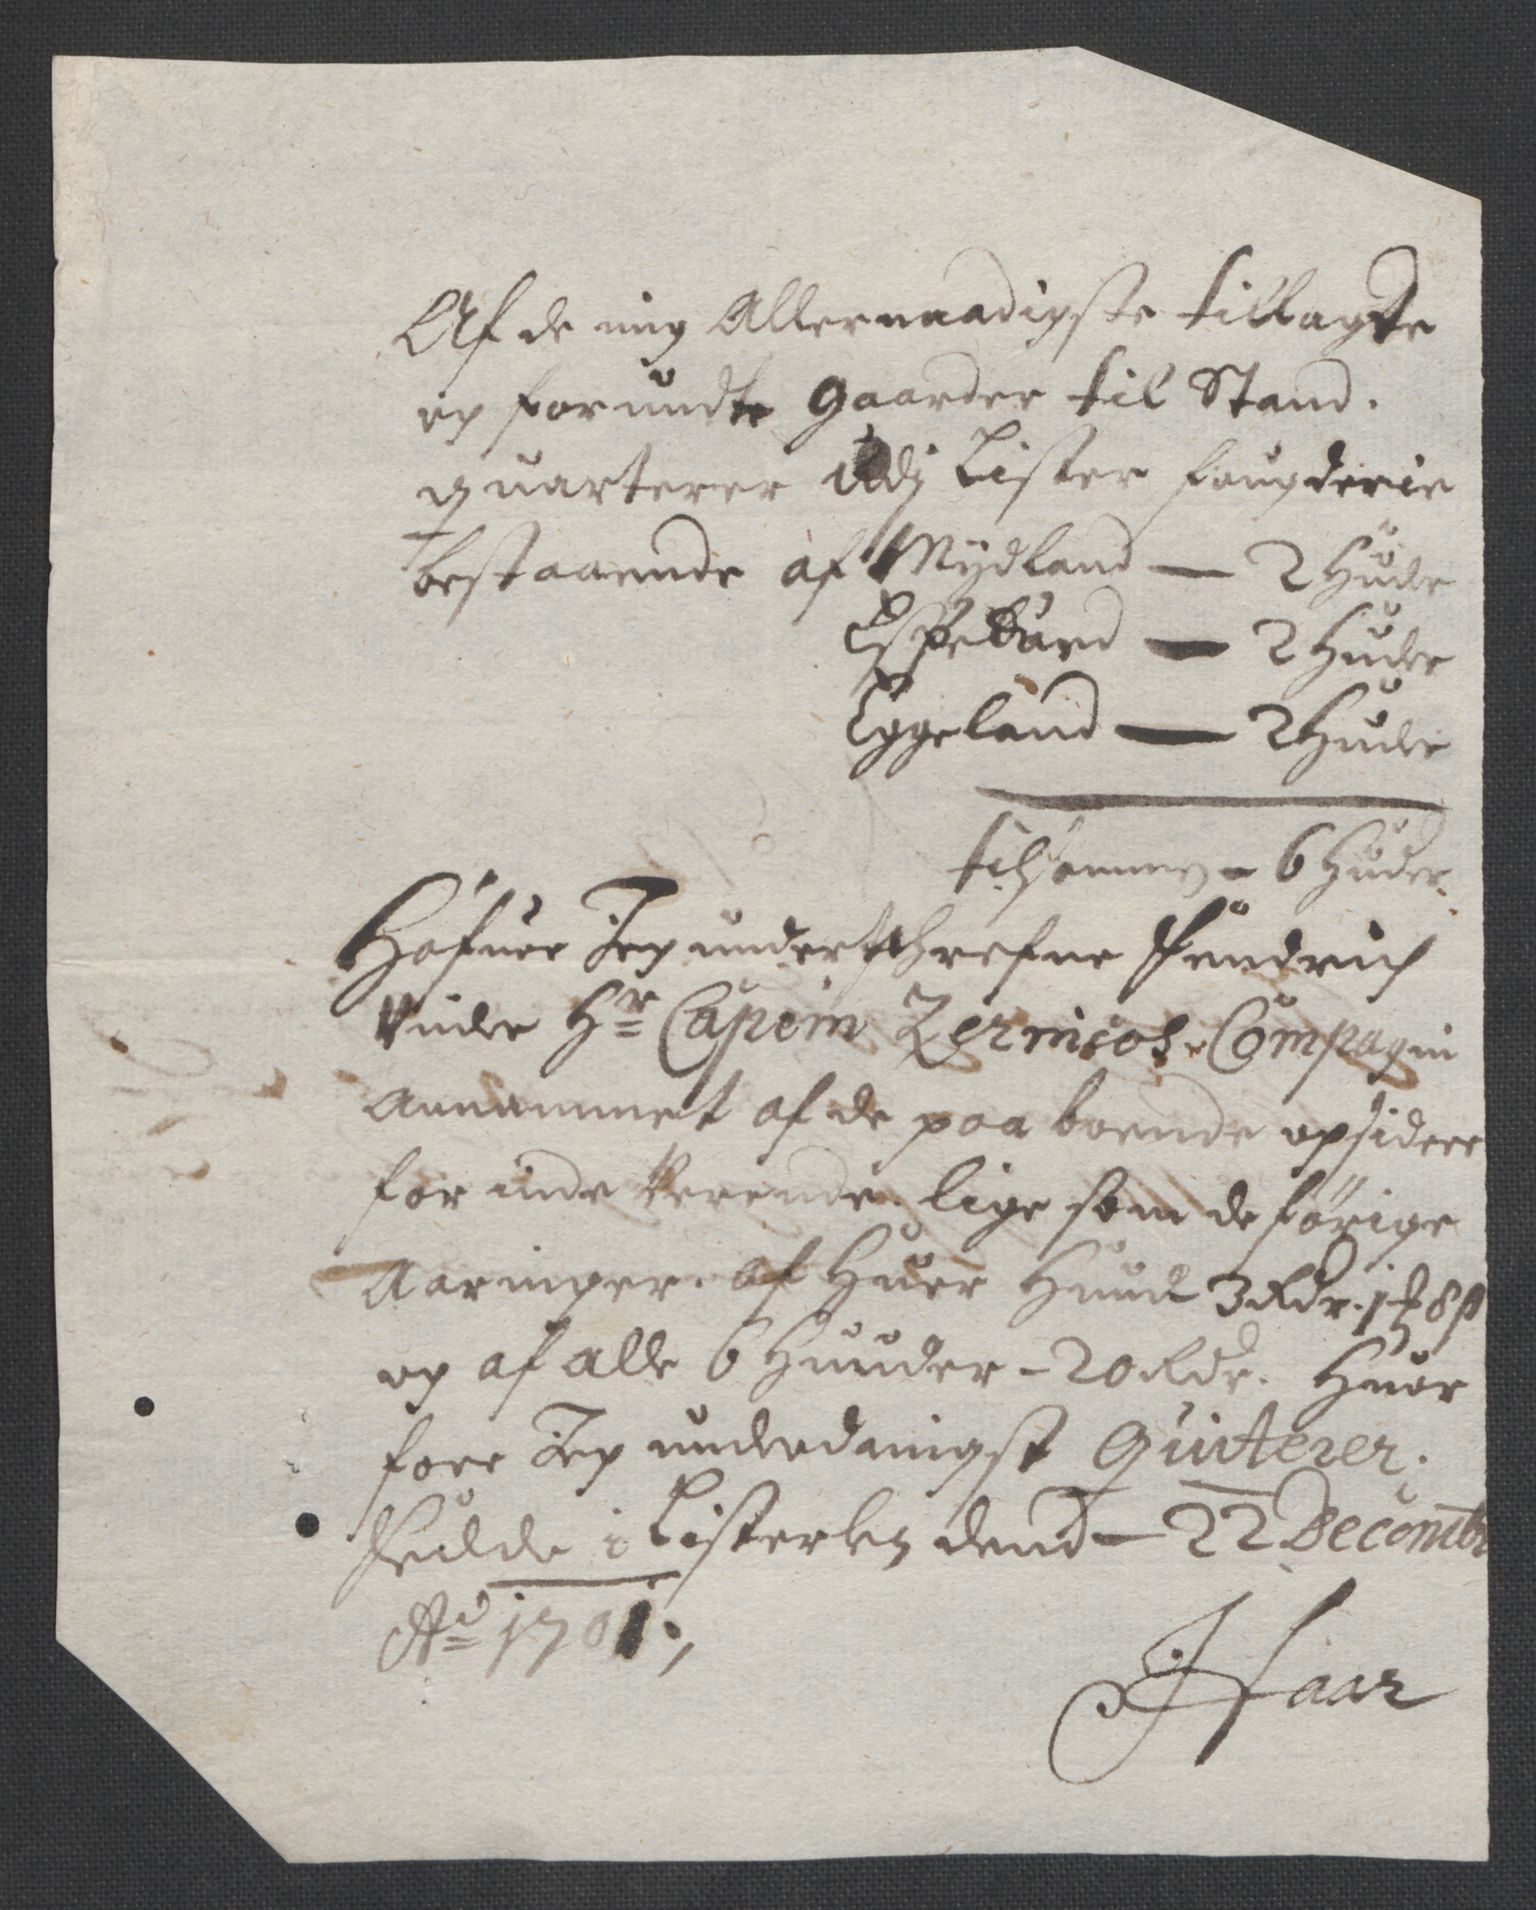 Af de mig Allernaadigste tillagte
og forundte gaarder til Stand.
quarterer udj Lister fougderie
bestaaende af Mydland — 2 Huder
Espeland — 2 Huder
Eggeland — 2 Huder
tilsammen - 6 Huder.
Hafuer Jeg underschrefne
under Hr Capein Compagni
Annammet af de paa boende opsidere
for inde verende. lige som de förige
Aaringer. af Huer Huud 3 Rdr. 1 ⅔ 8 s
og af alle 6 Huuder - 20 Rdr. Huor
fore Jeg underdanigst Quitterer.
i Listerlen dend - 22 Decembr
Ao 1701.,